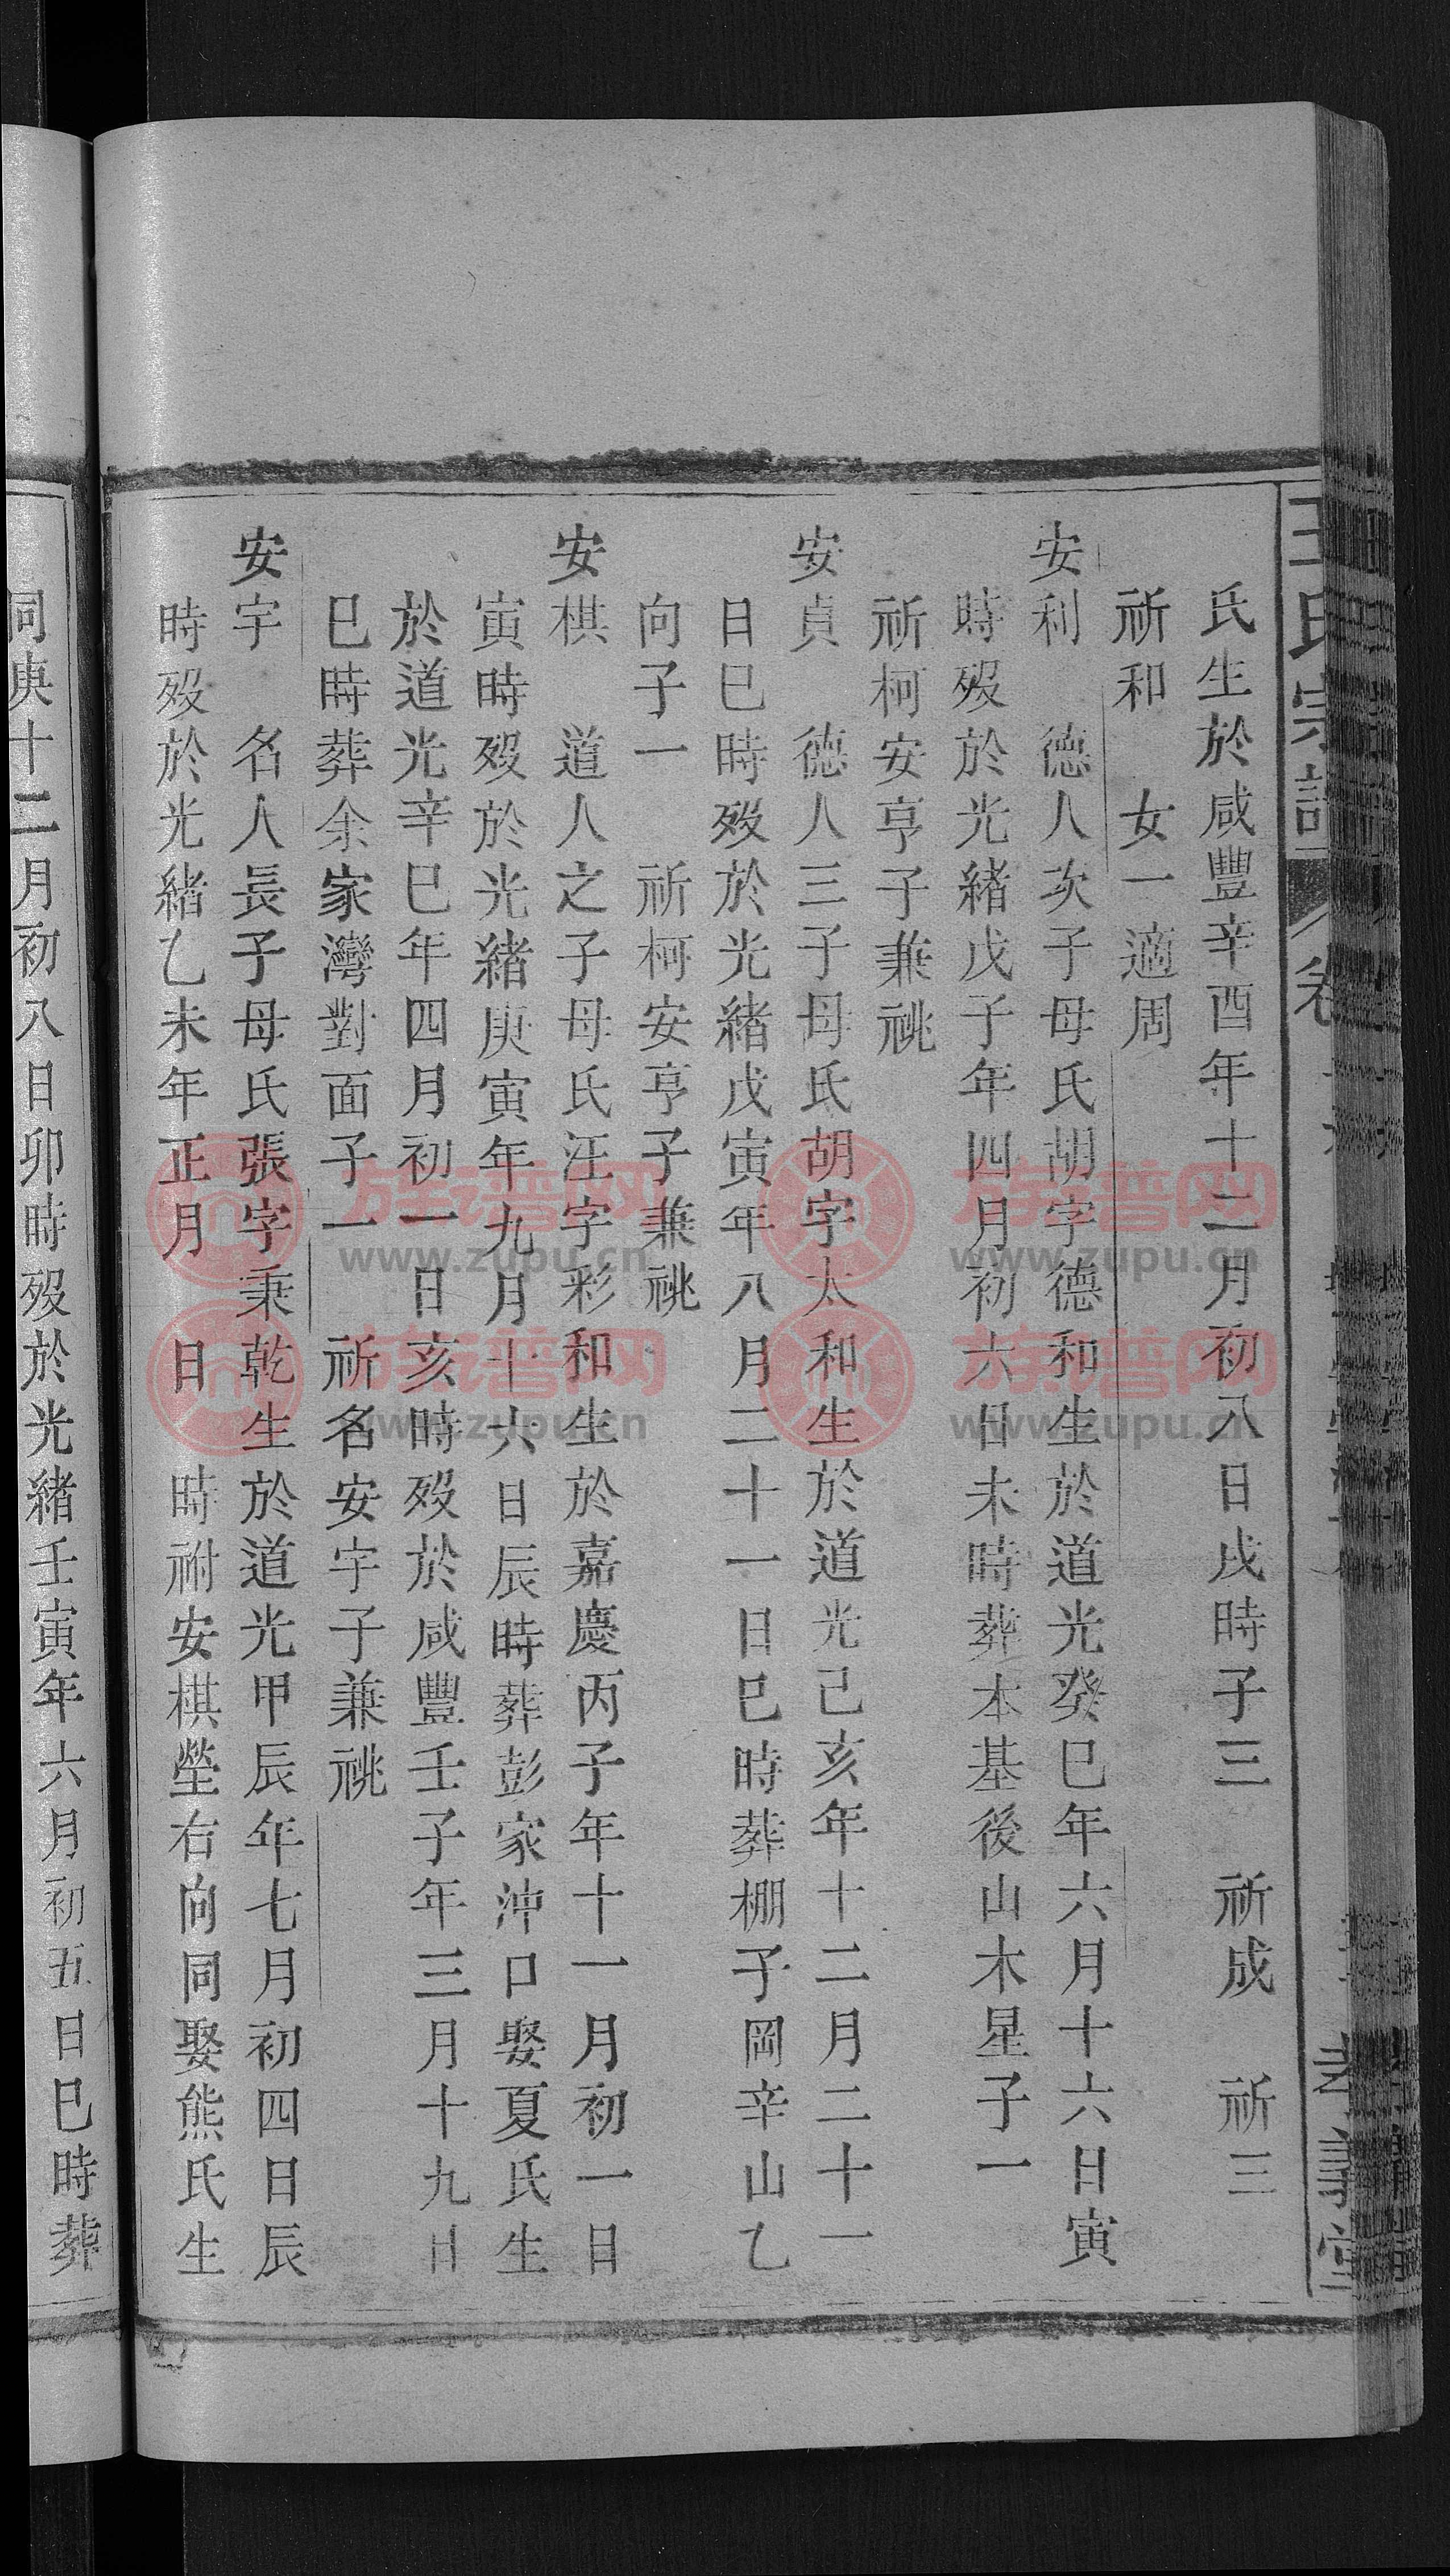 王氏宗譜
氏生於咸豐辛酉年十二月初八日戌時子三　祈成　祈三
祈和　女一適周
安利　德人次子母氏胡字德和生於道光癸巳年六月十六日寅
時歿於光緒戊子年四月初六日未時葬本基後山木星子一
祈柯安亨子兼祧
安貞　德人三子母氏胡字太和生於道光己亥年十二月二十一
日巳時歿於光緒戊寅年八月二十一日巳時葬棚子岡辛山乙
向子一　祈柯安亨子兼祧
安棋　道人之子母氏汪字彩和生於嘉慶丙子年十一月初一日
寅時歿於光緒庚寅年九月十六日辰時葬彭家沖口娶夏氏生
於道光辛巳年四月初一日亥時歿於咸豐壬子年三月十九日
巳時葬余家灣對面子一　祈名安宇子兼祧
安宇　名人長子母氏張字秉乾生於道光甲辰年七月初四日辰
時歿於光緒乙未年正月　日　時祔安棋塋右向同娶熊氏生
同庚十二月初八日卯時歿於光緒壬寅年六月初五日巳時葬
族谱网
www.zupu.cn
族谱网
www.zupu.cn
族谱网
www.zupu.cn
族谱网
www.zupu.cn